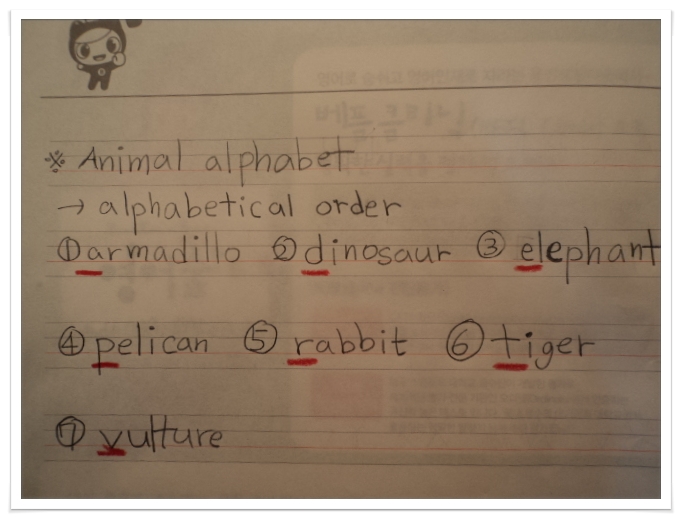 ※ Animal alphabet
→ alphabetical order
① armadillo ② dinosaur ③ elephant
④ pelican ⑤ rabbit ⑥ tiger
⑦ vulture